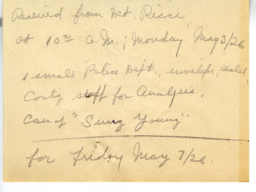 Received from Det.
at 10 00 A.M., Monday May 3/26
1 small Police Dept. envelope, sealed
Contg stuff for Analysis.
Case of "Sung Young"
for Friday May 7/26.